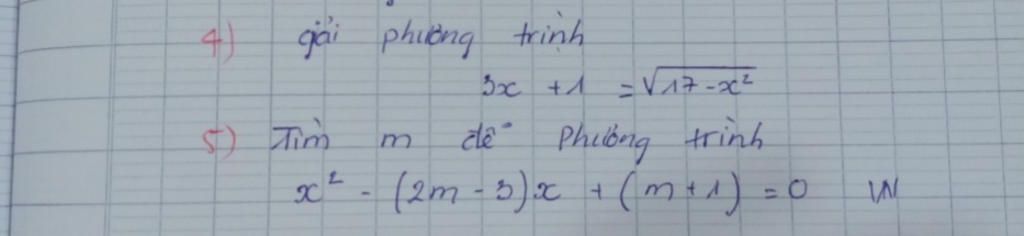 4) giải phương trình
3x + 1 = √17 - x²
5) Tìm m để phương trình
x² - (2m - 3)x + (m + 1) = 0 VN